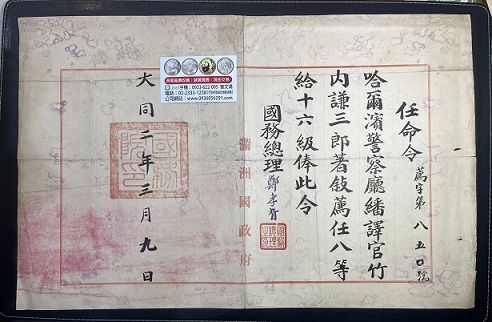 任命令
薦字第八五〇號
哈爾濱警察廳繙譯官竹
內謙三郎著敍薦任八等
給十六級俸此令
國務總理 鄭孝胥
滿洲國政府
大同二年三月九日